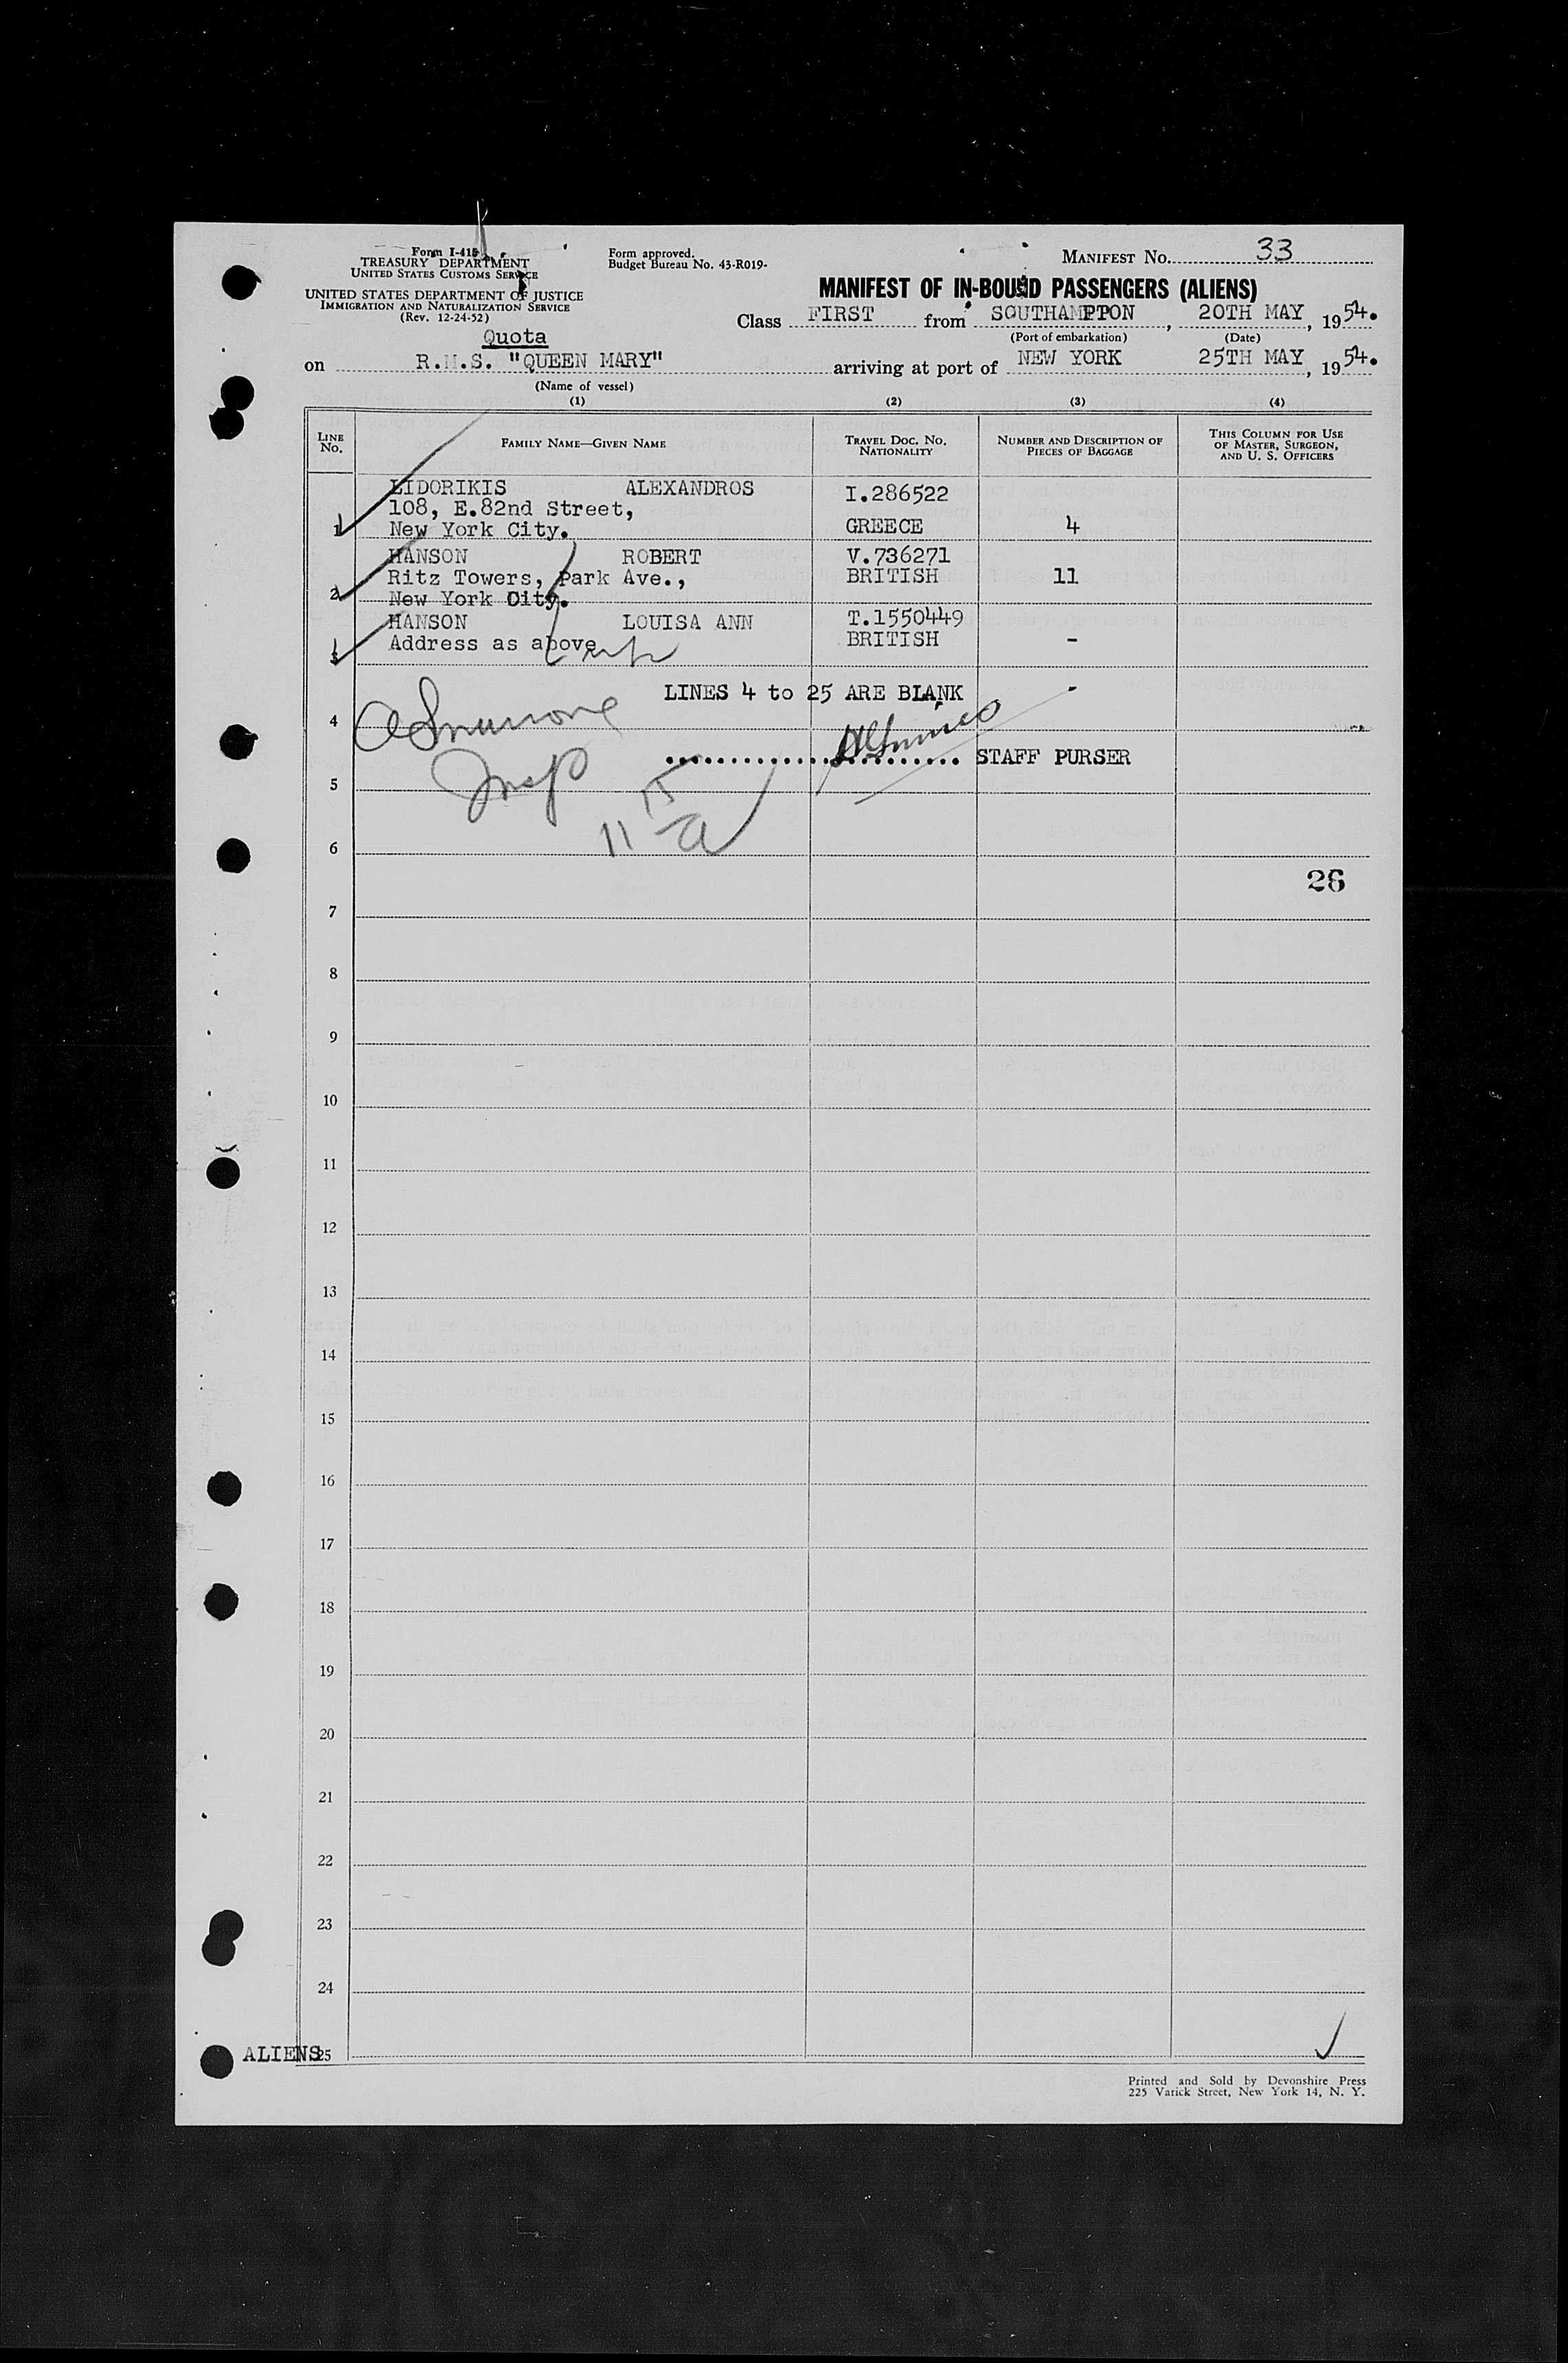 Form I-415
TREASURY DEPARTMENT
UNITED STATES CUSTOMS SERVICE
UNITED STATES DEPARTMENT OF JUSTICE
IMMIGRATION AND NATURALIZATION SERVICE
(Rev. 12-24-52)
Form approved.
Budget Bureau No. 43-R019-
MANIFEST No. 33
MANIFEST OF IN-BOUND PASSENGERS (ALIENS)
Quota
Class FIRST from SOUTHAMPTON, 20TH MAY, 1954.
(Port of embarkation) (Date)
on R.M.S. "QUEEN MARY" arriving at port of NEW YORK 25TH MAY, 1954.
(Name of vessel)
(1) (2) (3) (4)
LINE No. FAMILY NAME—GIVEN NAME TRAVEL DOC. NO. NATIONALITY NUMBER AND DESCRIPTION OF PIECES OF BAGGAGE THIS COLUMN FOR USE OF MASTER, SURGEON, AND U. S. OFFICERS
LIDORIKIS ALEXANDROS I.286522
108, E.82nd Street,
1 New York City. GREECE 4
HANSON ROBERT V.736271
Ritz Towers, Park Ave., BRITISH 11
2 New York City.
HANSON LOUISA ANN T.1550449
Address as above BRITISH -
3
LINES 4 to 25 ARE BLANK -
4
STAFF PURSER
Insp
5
11 15 a
6
26
7
8
9
10
11
12
13
14
15
16
17
18
19
20
21
22
23
24
ALIENS 25
Printed and Sold by Devonshire Press
225 Varick Street, New York 14, N. Y.